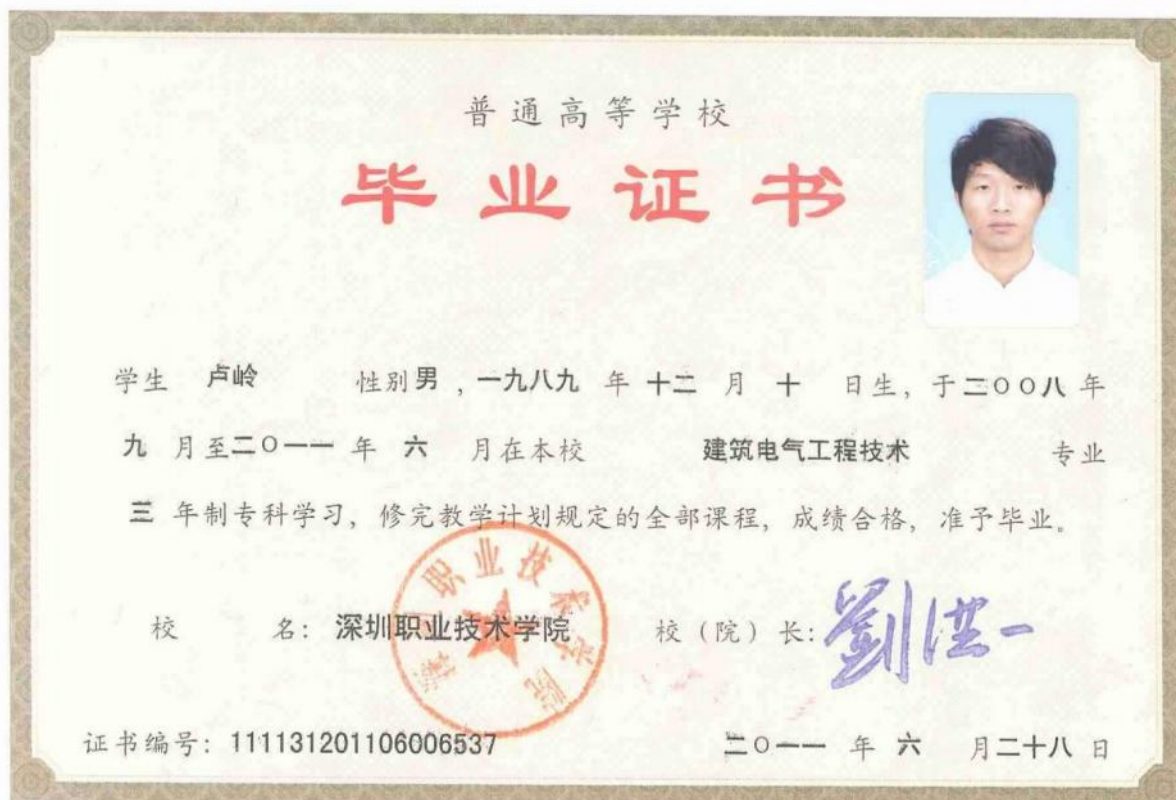 普通高等学校
毕业证书
学生 卢岭 性别男，一九八九 年 十二 月 十 日生，于二〇〇八年
九 月至二〇一一 年 六 月在本校 建筑电气工程技术 专业
三 年制专科学习，修完教学计划规定的全部课程，成绩合格，准予毕业。
校 名：深圳职业技术学院 校（院）长：劉洪一
深圳职业技术学院
证书编号：111131201106006537 二〇一一 年 六 月二十八 日